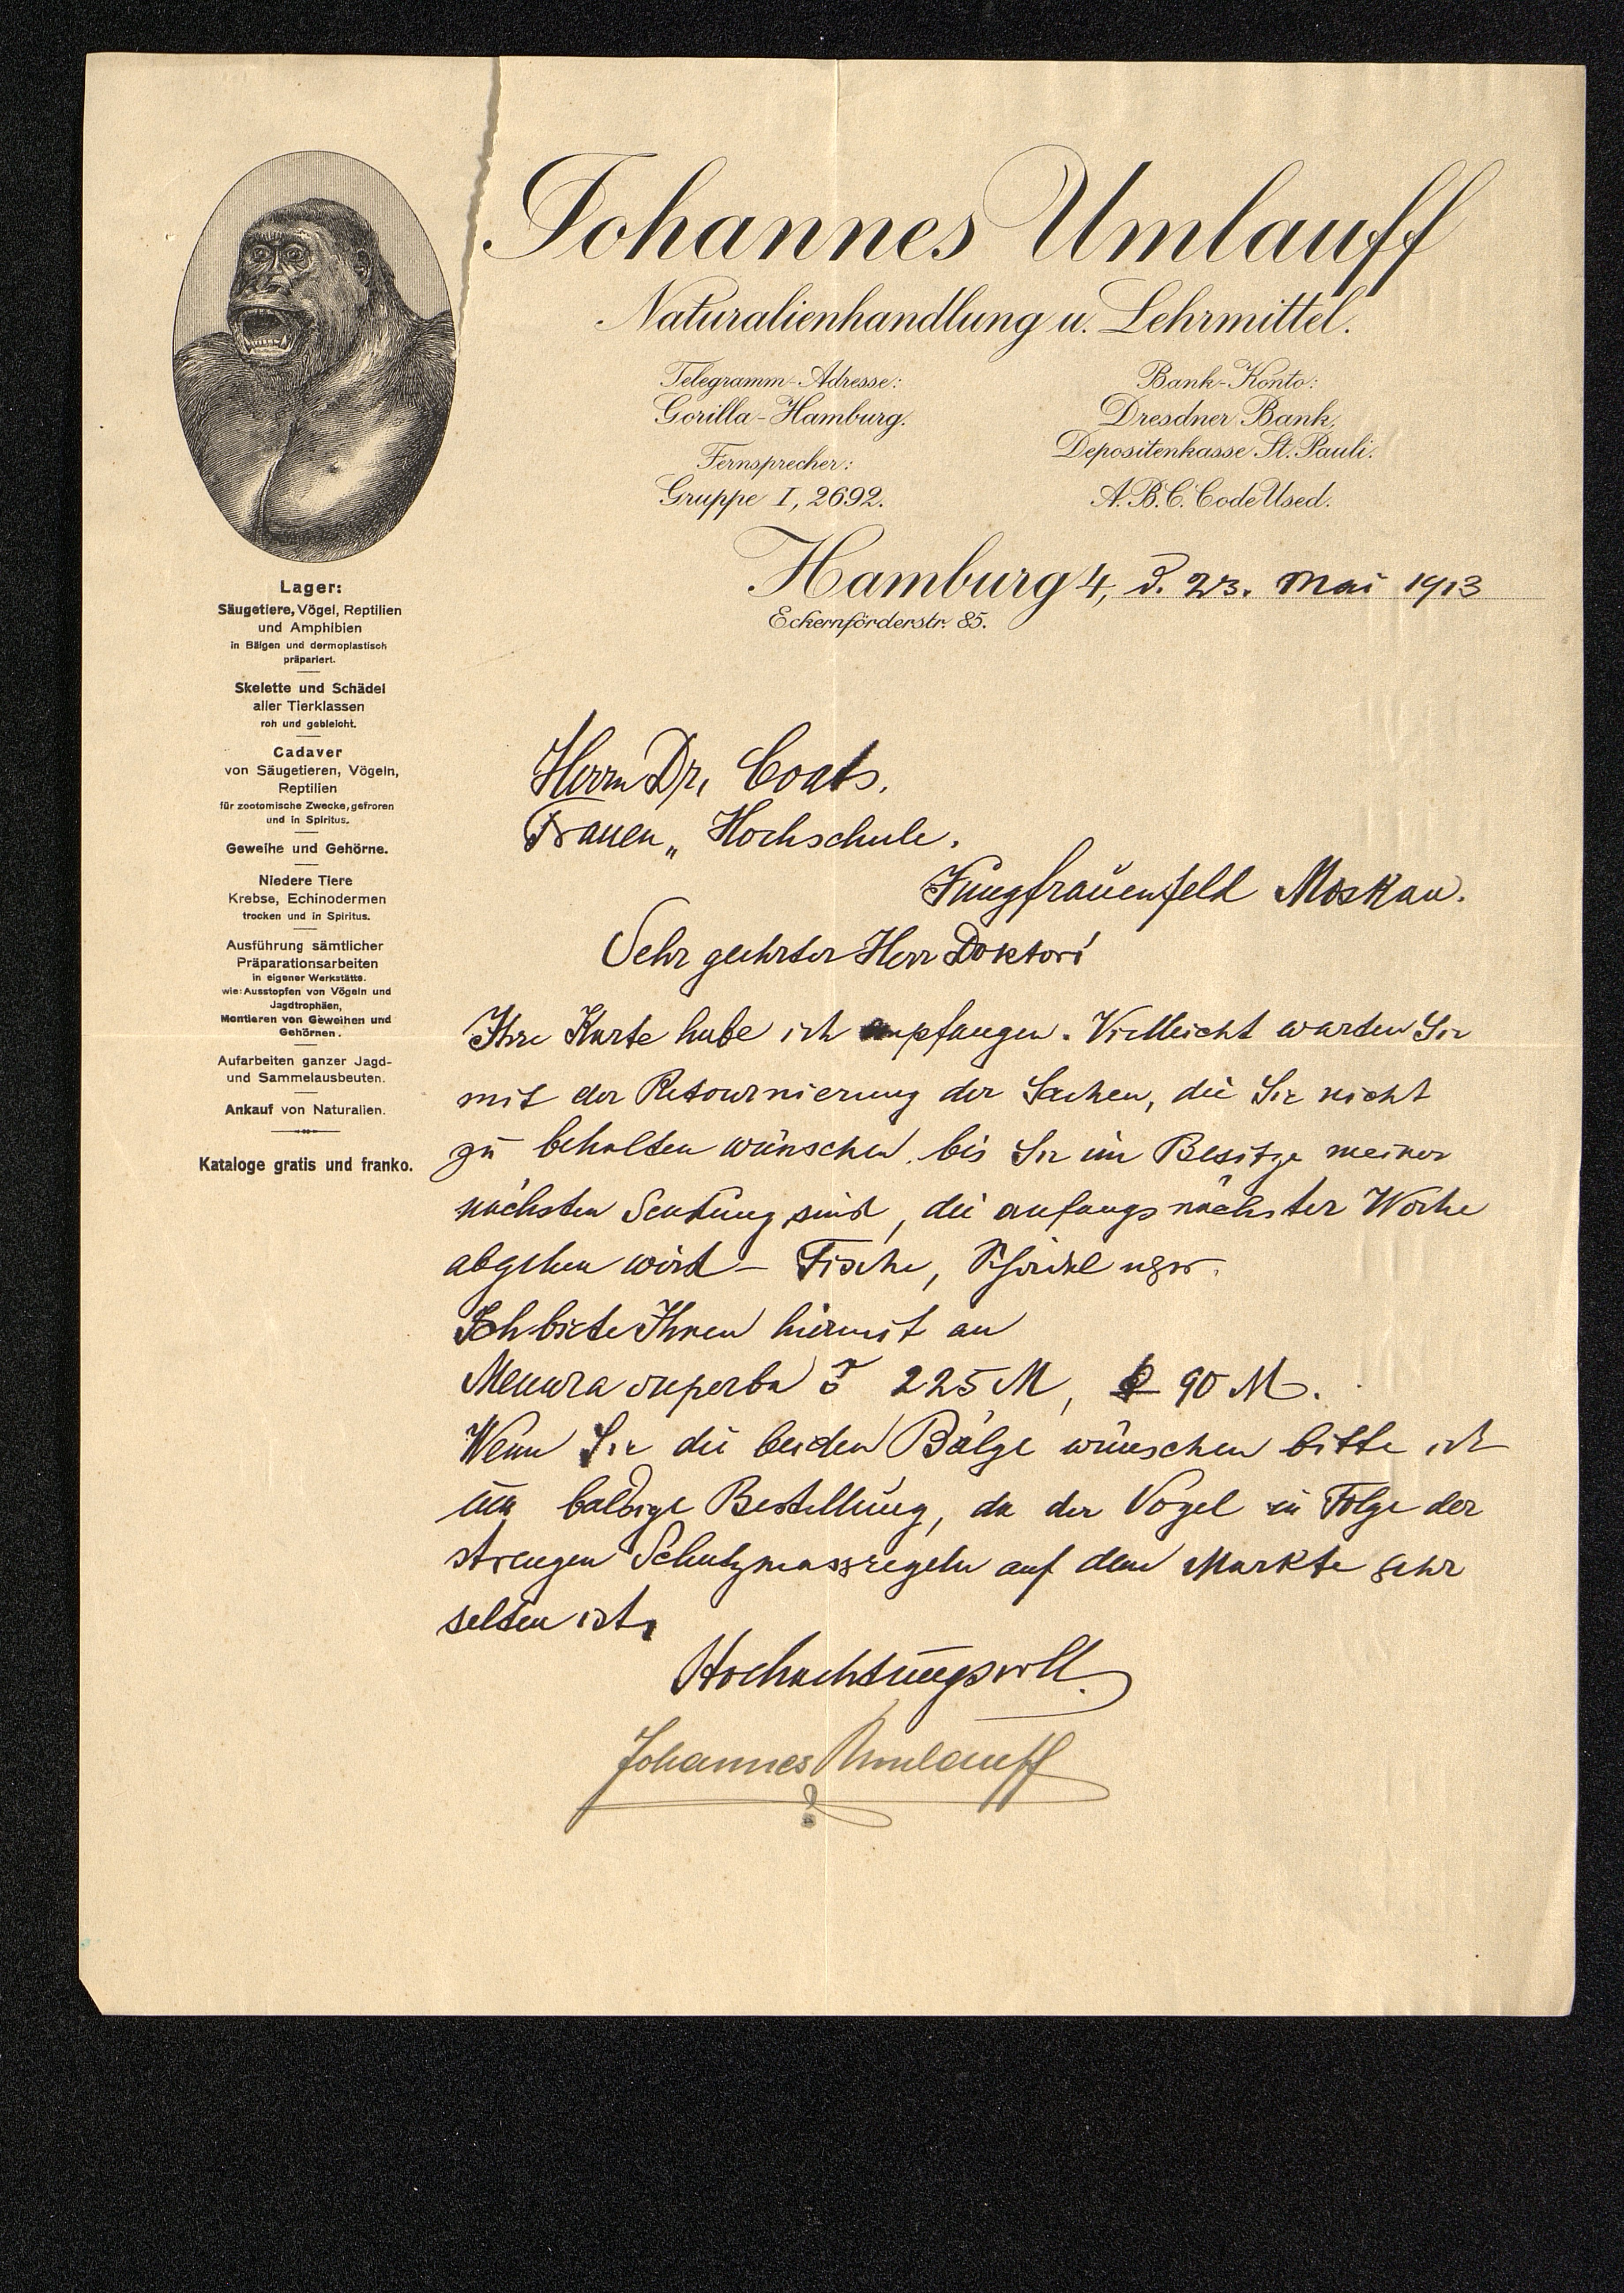 Johannes Umlauff
Naturalienhandlung u. Lehrmittel.
Telegramm-Adresse:
Gorilla-Hamburg.
Fernsprecher:
Gruppe I, 2692.
Bank-Konto:
Dresdner Bank,
Depositenkasse St. Pauli.
A.B.C. Code Used.
Hamburg 4, d. 23. Mai 1913
Eckernförderstr. 85.
Lager:
Säugetiere, Vögel, Reptilien
und Amphibien
in Bälgen und dermoplastisch
präpariert.
Skelette und Schädel
aller Tierklassen
roh und gebleicht.
Cadaver
von Säugetieren, Vögeln,
Reptilien
für zootomische Zwecke, gefroren
und in Spiritus.
Geweihe und Gehörne.
Niedere Tiere
Krebse, Echinodermen
trocken und in Spiritus.
Ausführung sämtlicher
Präparationsarbeiten
in eigener Werkstätte.
wie: Ausstopfen von Vögeln und
Jagdtrophäen,
Montieren von Geweihen und
Gehörnen.
Aufarbeiten ganzer Jagd-
und Sammelausbeuten.
Ankauf von Naturalien.
Kataloge gratis und franko.
Herrn Dr. Coats.
Frauen „ Hochschule.
Jungfrauenfeld Moskau.
Sehr geehrter Herr Doktor!
Ihre Karte habe ich empfangen. Vielleicht warten Sie
mit der Retournierung der Sachen, die Sie nicht
zu behalten wünschen, bis Sie im Besitze meiner
nächsten Sendung sind, die anfangs nächster Woche
abgehen wird – Fische, Schädel usw.
Ich biete Ihnen hiermit an
Menura superba ♂ 225 M, ♀ 90 M.
Wenn Sie die beiden Bälge wünschen bitte ich
um baldige Bestellung, da der Vogel in Folge der
strengen Schutzmassregeln auf dem Markte sehr
selten ist.
Hochachtungsvoll
Johannes Umlauff